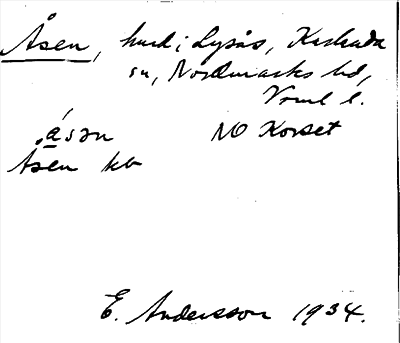 Åsen, hmd i Lysås, Karlanda
sn, Nordmarks hd,
Vrml l.
åsən NO Korset
Åsen kb
E. Andersson 1934.